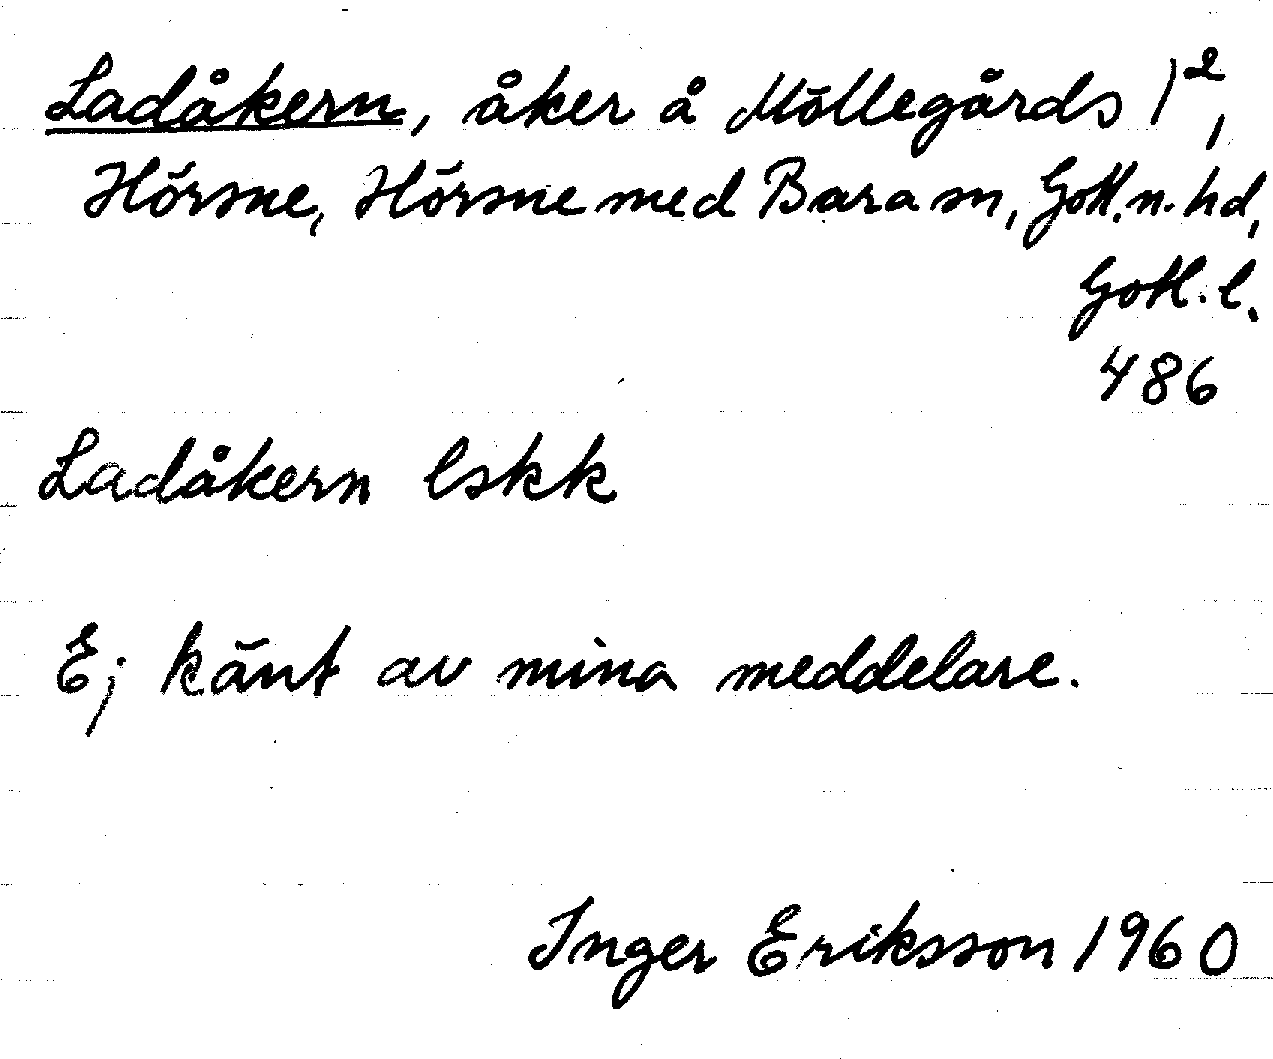 Ladåkern, åker å Möllegårds 1²,
Hörsne, Hörsne med Bara sn, Gotl. n. hd,
Gotl. l.
486
Ladåkern lskk
Ej känt av mina meddelare.
Inger Eriksson 1960